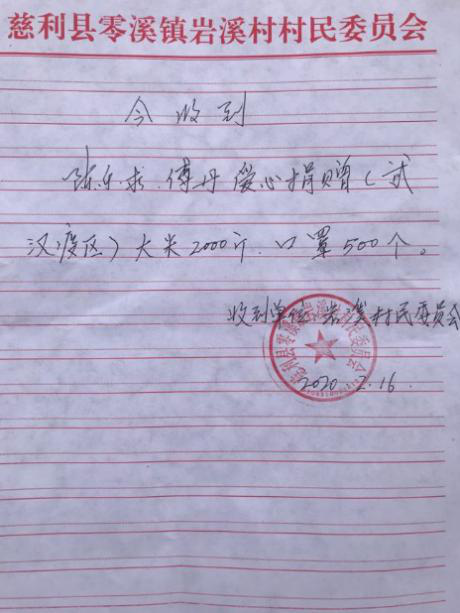 慈利县零溪镇岩溪村村民委员会
今收到
陈乐求、傅丹爱心捐赠（武
汉疫区）大米2000斤、口罩500个。
收到单位：岩溪村民委员会
慈利县零溪镇岩溪村村民委员会
2020.2.16.